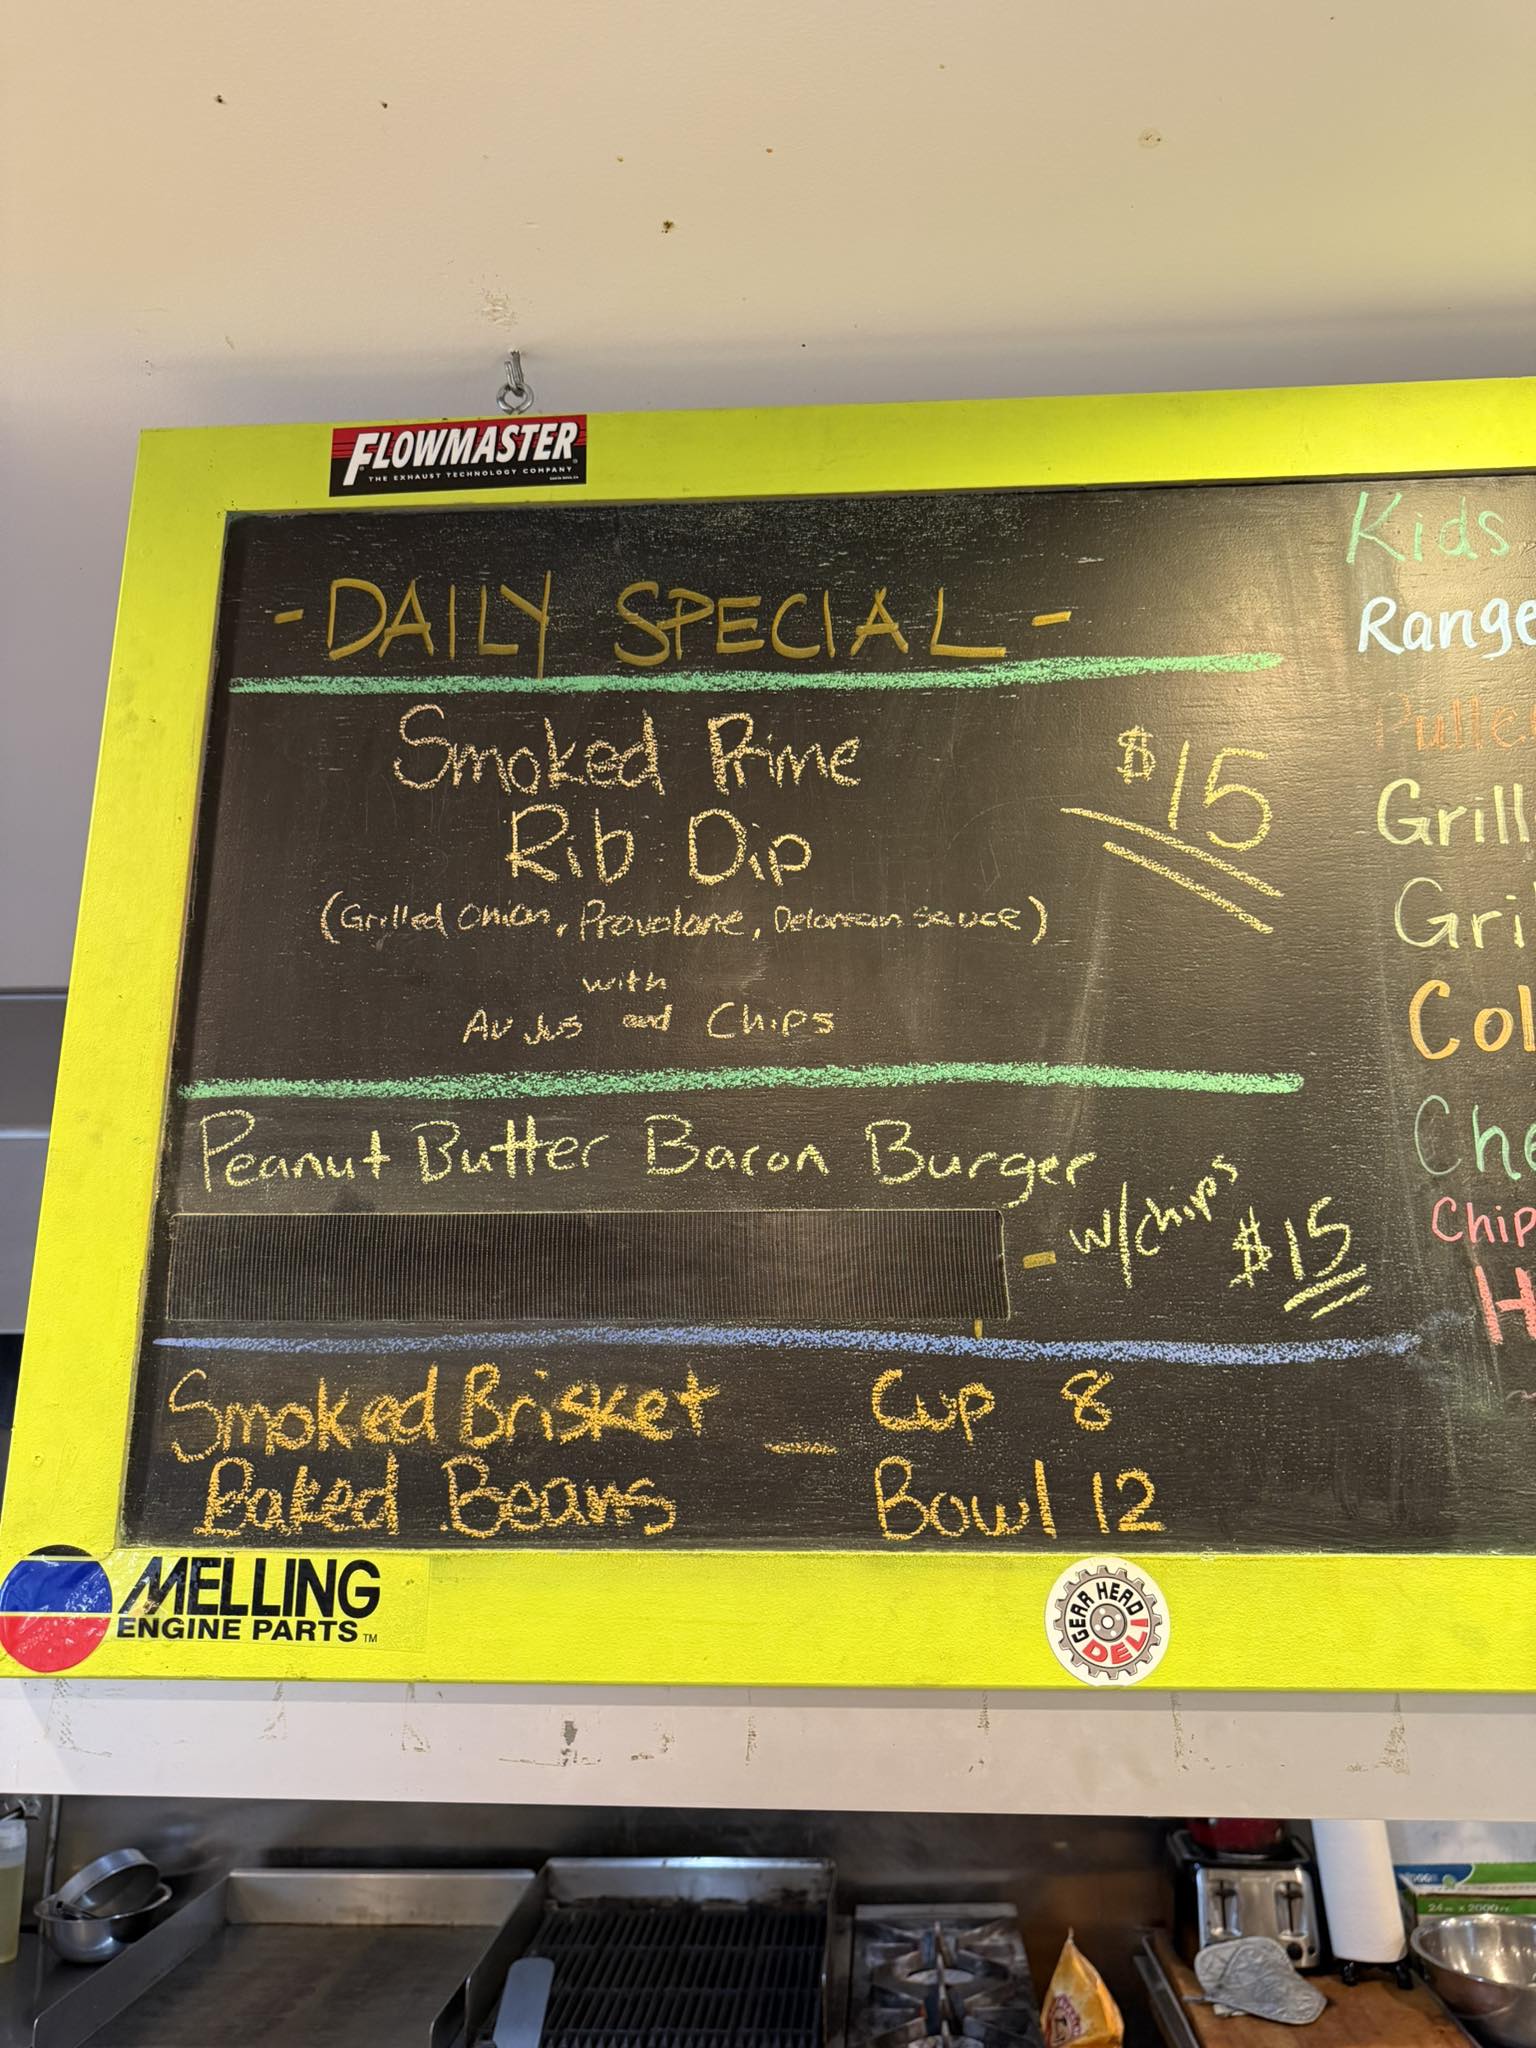 FLOWMASTER
THE EXHAUST TECHNOLOGY COMPANY
- DAILY SPECIAL -
Smoked Prime
Rib Dip
$15
(Grilled Onion, Provolone, Delorean Sauce)
with
Au Jus and Chips
Peanut Butter Bacon Burger
- w/chips $15
Smoked Brisket - Cup 8
Baked Beans Bowl 12
Kids
Range
Pulle
Grill
Gri
Col
Che
Chip
H
MELLING
ENGINE PARTS TM
GEAR HEAD
DELI